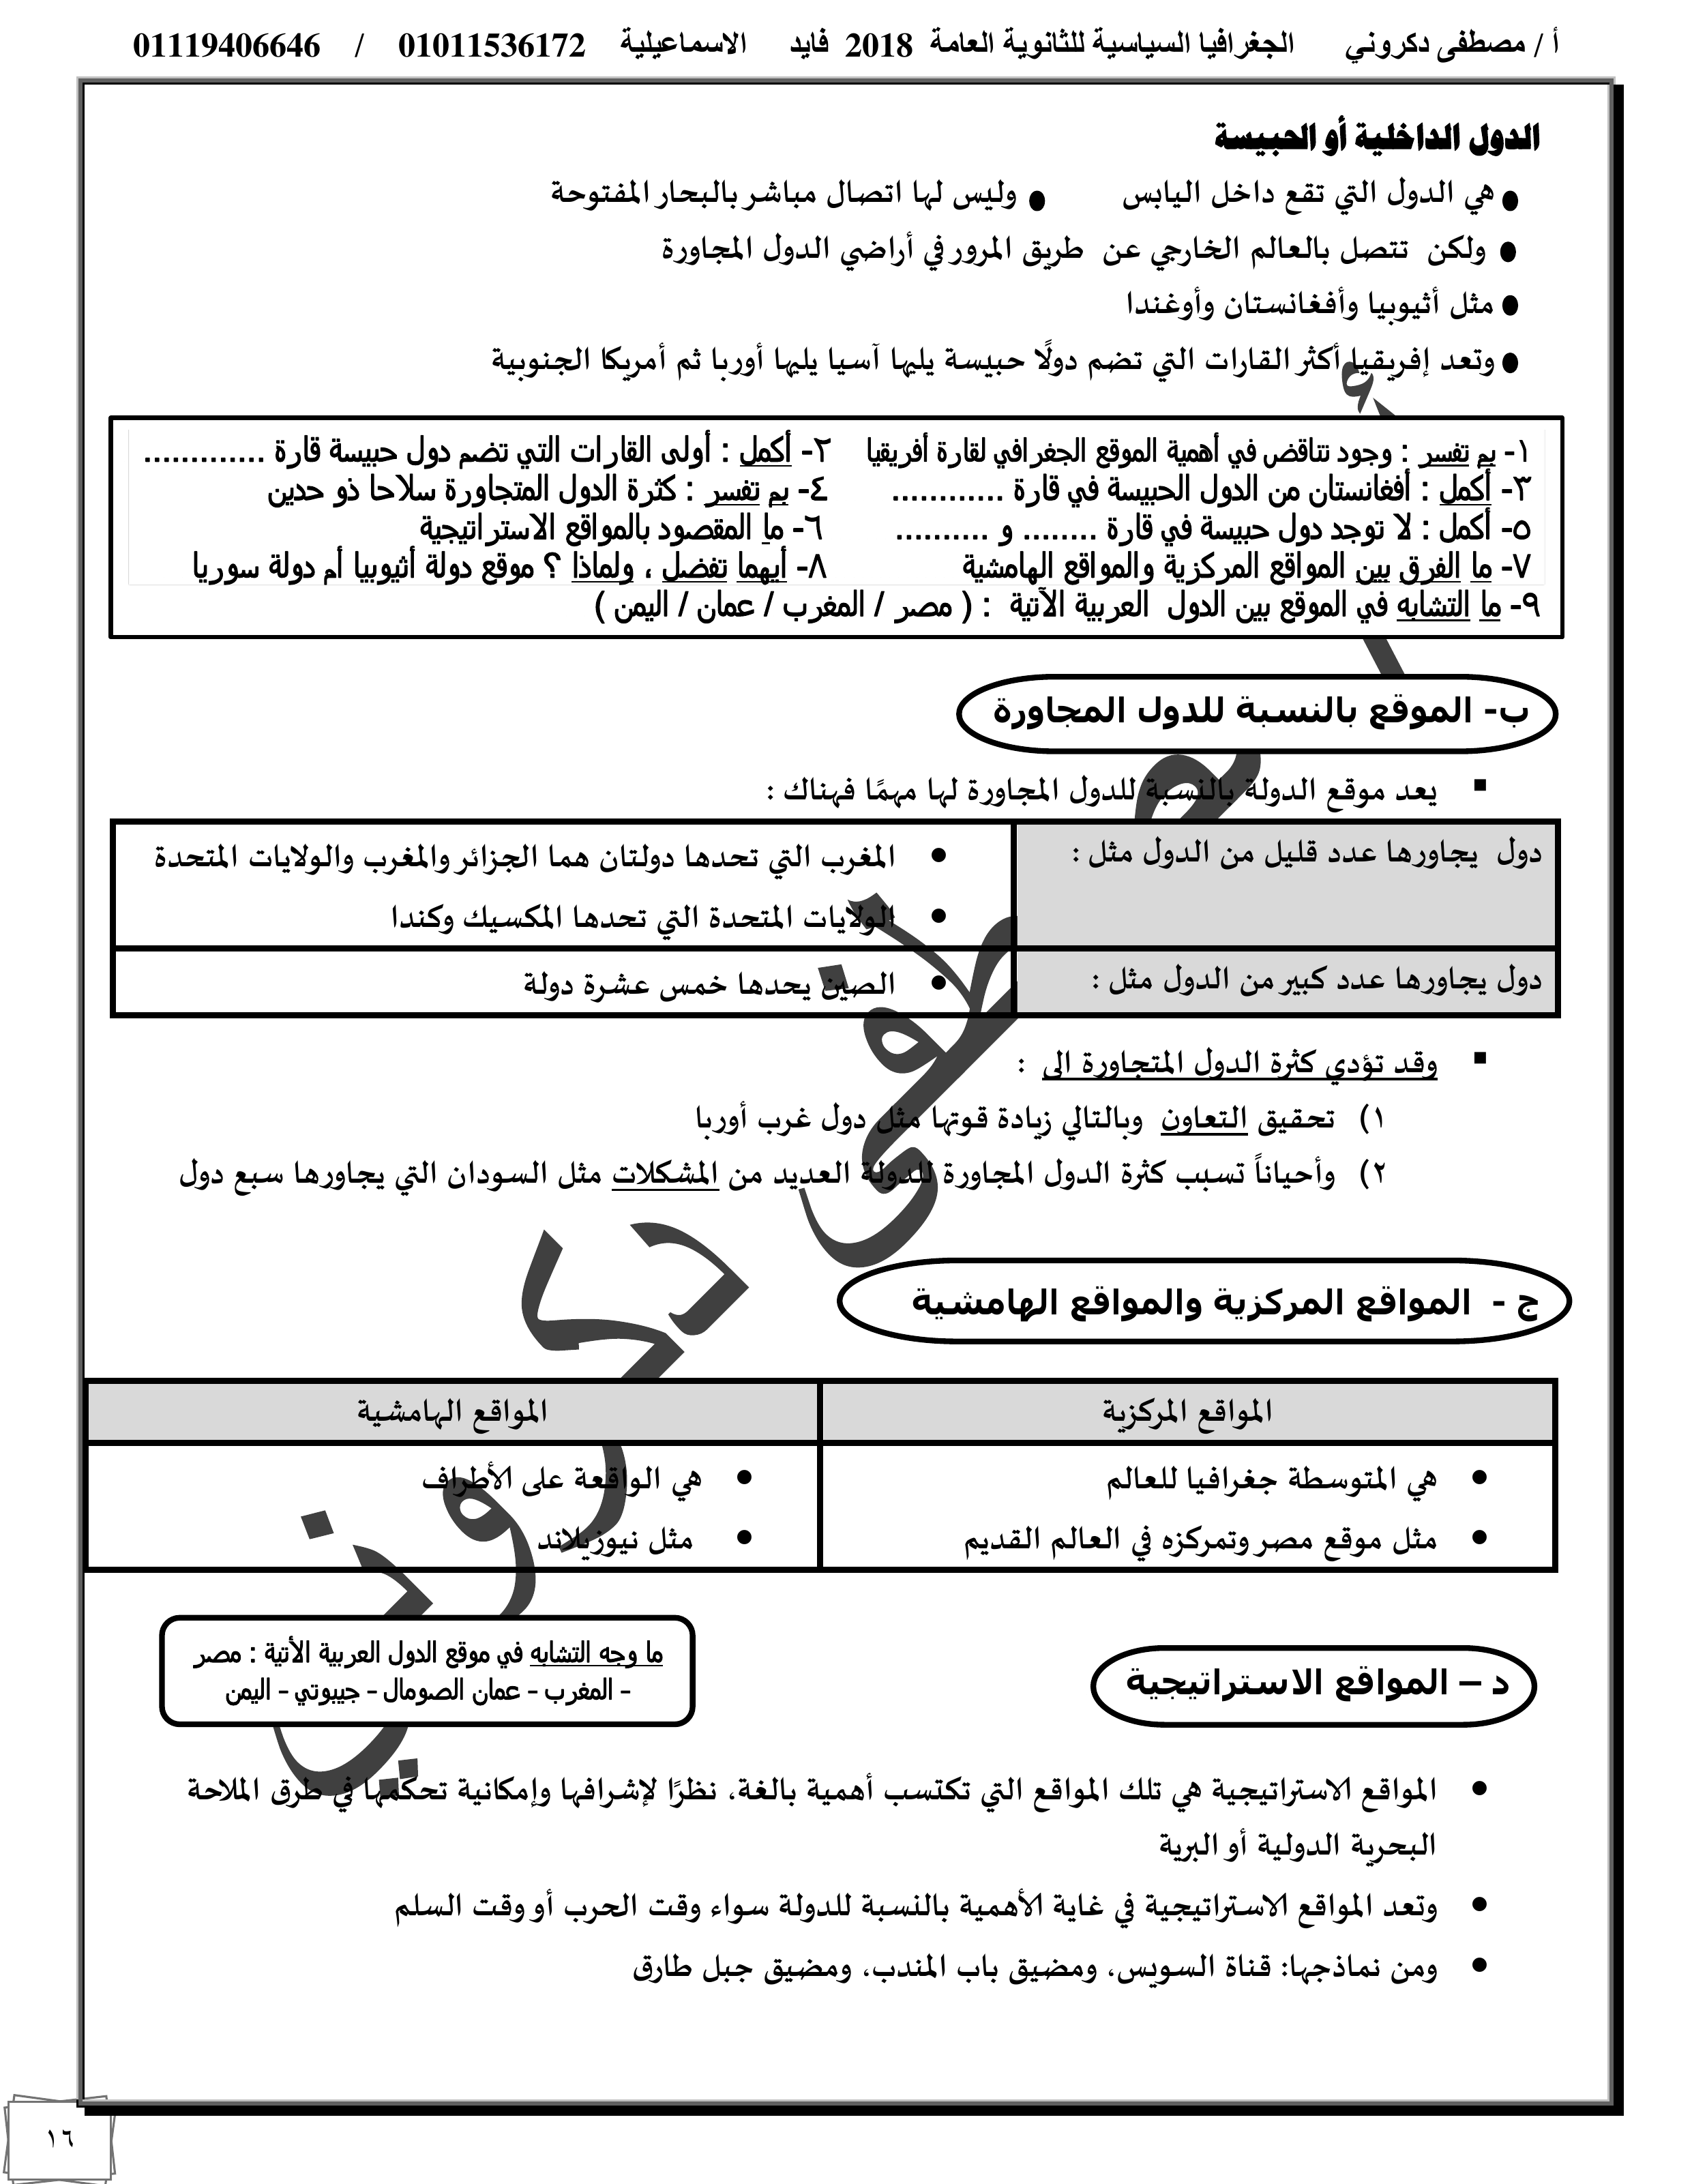 أ / مصطفى دكروني الجغرافيا السياسية للثانوية العامة 2018 فايد الاسماعيلية 01011536172 / 01119406646
الدول الداخلية أو الحبيسة
● هي الدول التي تقع داخل اليابس ● وليس لها اتصال مباشر بالبحار المفتوحة
● ولكن تتصل بالعالم الخارجي عن طريق المرور في أراضي الدول المجاورة
● مثل أثيوبيا وأفغانستان وأوغندا
● وتعد إفريقيا أكثر القارات التي تضم دولًا حبيسة يليها آسيا يليها أوربا ثم أمريكا الجنوبية
١- بم تفسر : وجود تناقض في أهمية الموقع الجغرافي لقارة أفريقيا ٢- أكمل : أولى القارات التي تضم دول حبيسة قارة .............
٣- أكمل : أفغانستان من الدول الحبيسة في قارة ............ ٤- بم تفسر : كثرة الدول المتجاورة سلاحا ذو حدين
٥- أكمل : لا توجد دول حبيسة في قارة ........ و .......... ٦- ما المقصود بالمواقع الاستراتيجية
٧- ما الفرق بين المواقع المركزية والمواقع الهامشية ٨- أيهما تفضل ، ولماذا ؟ موقع دولة أثيوبيا أم دولة سوريا
٩- ما التشابه في الموقع بين الدول العربية الآتية : ( مصر / المغرب / عمان / اليمن )
ب- الموقع بالنسبة للدول المجاورة
▪ يعد موقع الدولة بالنسبة للدول المجاورة لها مهمًا فهناك :
دول يجاورها عدد قليل من الدول مثل : • المغرب التي تحدها دولتان هما الجزائر والمغرب والولايات المتحدة
• الولايات المتحدة التي تحدها المكسيك وكندا
دول يجاورها عدد كبير من الدول مثل : • الصين يحدها خمس عشرة دولة
▪ وقد تؤدي كثرة الدول المتجاورة الى :
١) تحقيق التعاون وبالتالي زيادة قوتها مثل دول غرب أوربا
٢) وأحياناً تسبب كثرة الدول المجاورة للدولة العديد من المشكلات مثل السودان التي يجاورها سبع دول
ج - المواقع المركزية والمواقع الهامشية
المواقع المركزية المواقع الهامشية
• هي المتوسطة جغرافيا للعالم • هي الواقعة على الأطراف
• مثل موقع مصر وتمركزه في العالم القديم • مثل نيوزيلاند
ما وجه التشابه في موقع الدول العربية الأتية : مصر
– المغرب – عمان الصومال – جيبوتي – اليمن
د – المواقع الاستراتيجية
• المواقع الاستراتيجية هي تلك المواقع التي تكتسب أهمية بالغة، نظرًا لإشرافها وإمكانية تحكمها في طرق الملاحة
البحرية الدولية أو البرية
• وتعد المواقع الاستراتيجية في غاية الأهمية بالنسبة للدولة سواء وقت الحرب أو وقت السلم
• ومن نماذجها: قناة السويس، ومضيق باب المندب، ومضيق جبل طارق
أ / مصطفى دكروني
١٦